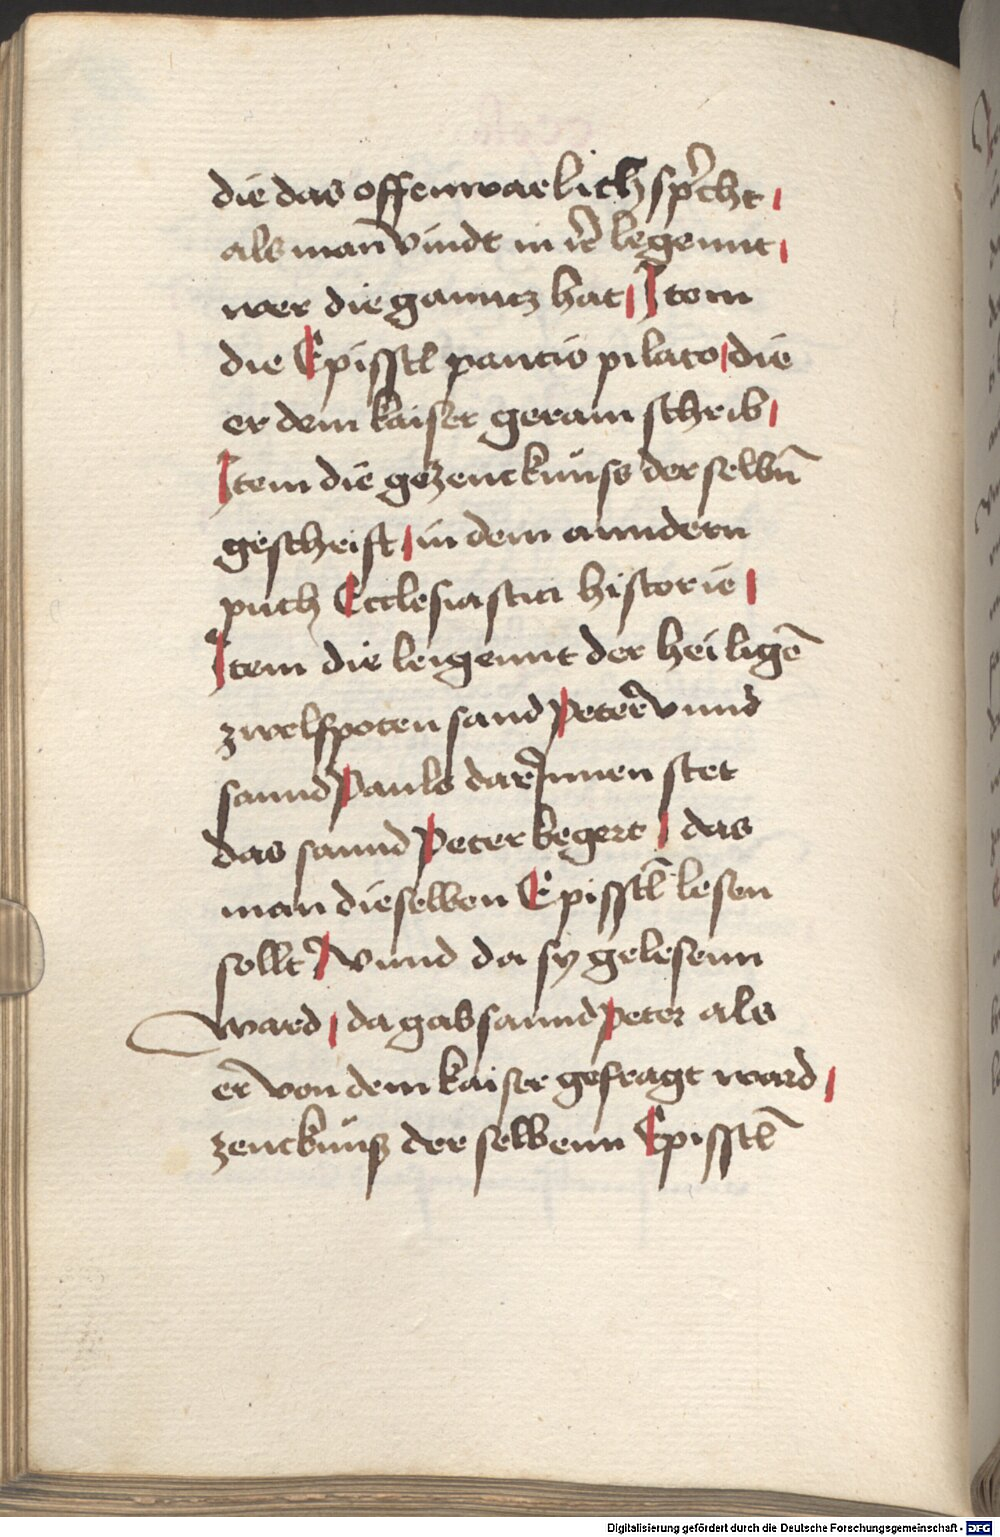 die das offenwaelich sp̃cht
als man vindt in ir̃ legennt
wer die ganntz hat Item
die Episstl poncio pilato die
er dem kaiser geram schrib
Item die gezencknüss der selbñ
geschrift in dem anndern
puch Ecclesiastici historie
Item die leigennt der heiligẽ
zwelfpoten sand Peter̃ vnnd
sannd Pauls dar Innen stet
das sannd Peter begert das
man die selben Episstl̃ lesen
sollt vnnd da sy gelesenn
ward da gab sannd peter als
er von dem kaiser gefragt ward
zencknüß der selbenn Episstl̃
Digitalisierung gefördert durch die Deutsche Forschungsgemeinschaft - DFG